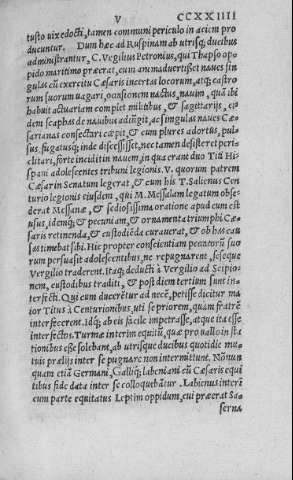 V CCXXIIII
tusto vix edocti, tamen communi periculo in aciem pro
ducuntur. Dum hæc ad Ruspinam ab utrisq; ducibus
administrantur, C. Vegilius Petronius, qui Thapso oppi
pido maritimo præerat, cum animaduertisset naues sin
gulas cū exercitu Cæsaris incertas locorum, atq; castro
rum suorum uagari, occasionem nactus, nauim, quā ibi
habuit actuariam complet militibus, & sagittarijs, ei
dem scaphas de nauibus adiūgit, ac singulas naues Cæ-
sarianas consectari cœpit, & cum plures adortus, pul-
sus, fugatusq; inde discessisset, nec tamen desisteret peri-
clitari, forte incidit in nauem, in qua erant duo Titi Hi-
spani adolescentes tribuni legionis. V. quorum patrem
Cæsar in Senatum legerat, & cum his T. Salienus Cen
turio legionis eiusdem, qui M. Messalam legatum obse
derat Messanæ, & sediosissima oratione apud eum est
usus, idemq; & pecuniam, & ornamenta triumphi Cæ-
saris retinenda, & custodiēda curauerat, & ob has cau
sas timebat sibi. Hic propter conscientiam peccatorū suo
rum persuasit adolescentibus, ne repugnarent, seseque
Vergilio traderent. Itaq; deducti à Vergilio ad Scipio-
nem, custodibus traditi, & post diem tertium sunt in-
terfecti. Qui cum ducerētur ad necē, petisse dicitur ma
ior Titus à Centurionibus, uti se priorem, quàm fratrē
interfecerent. Idq; ab eis facile impetrasse, atque ita esse
interfectos. Turmæ interim equitū, quæ pro uallo in sta
tionibus esse solebant, ab utrisque ducibus quotidie mi-
nutis prælijs inter se pugnare non intermittunt. Nōnun
quam etiā Germani, Galliq; labeniani cū Cæsaris equi
tibus fide data inter se colloquebātur. Labienus interē
cum parte equitatus Leptim oppidum, cui præerat Sa-
serna